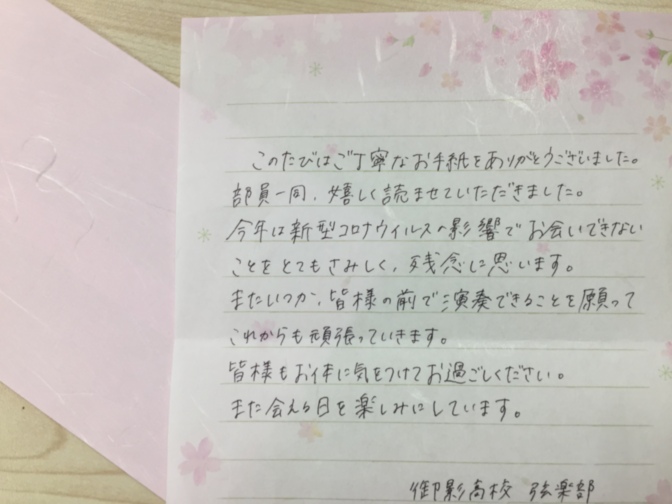 このたびはご丁寧なお手紙をありがとうございました。
部員一同、嬉しく読ませていただきました。
今年は新型コロナウイルスの影響でお会いできない
ことをとてもさみしく、残念に思います。
またいつか、皆様の前で演奏できることを願って
これからも頑張っていきます。
皆様もお体に気をつけてお過ごしください。
また会える日を楽しみにしています。
御影高校 弦楽部